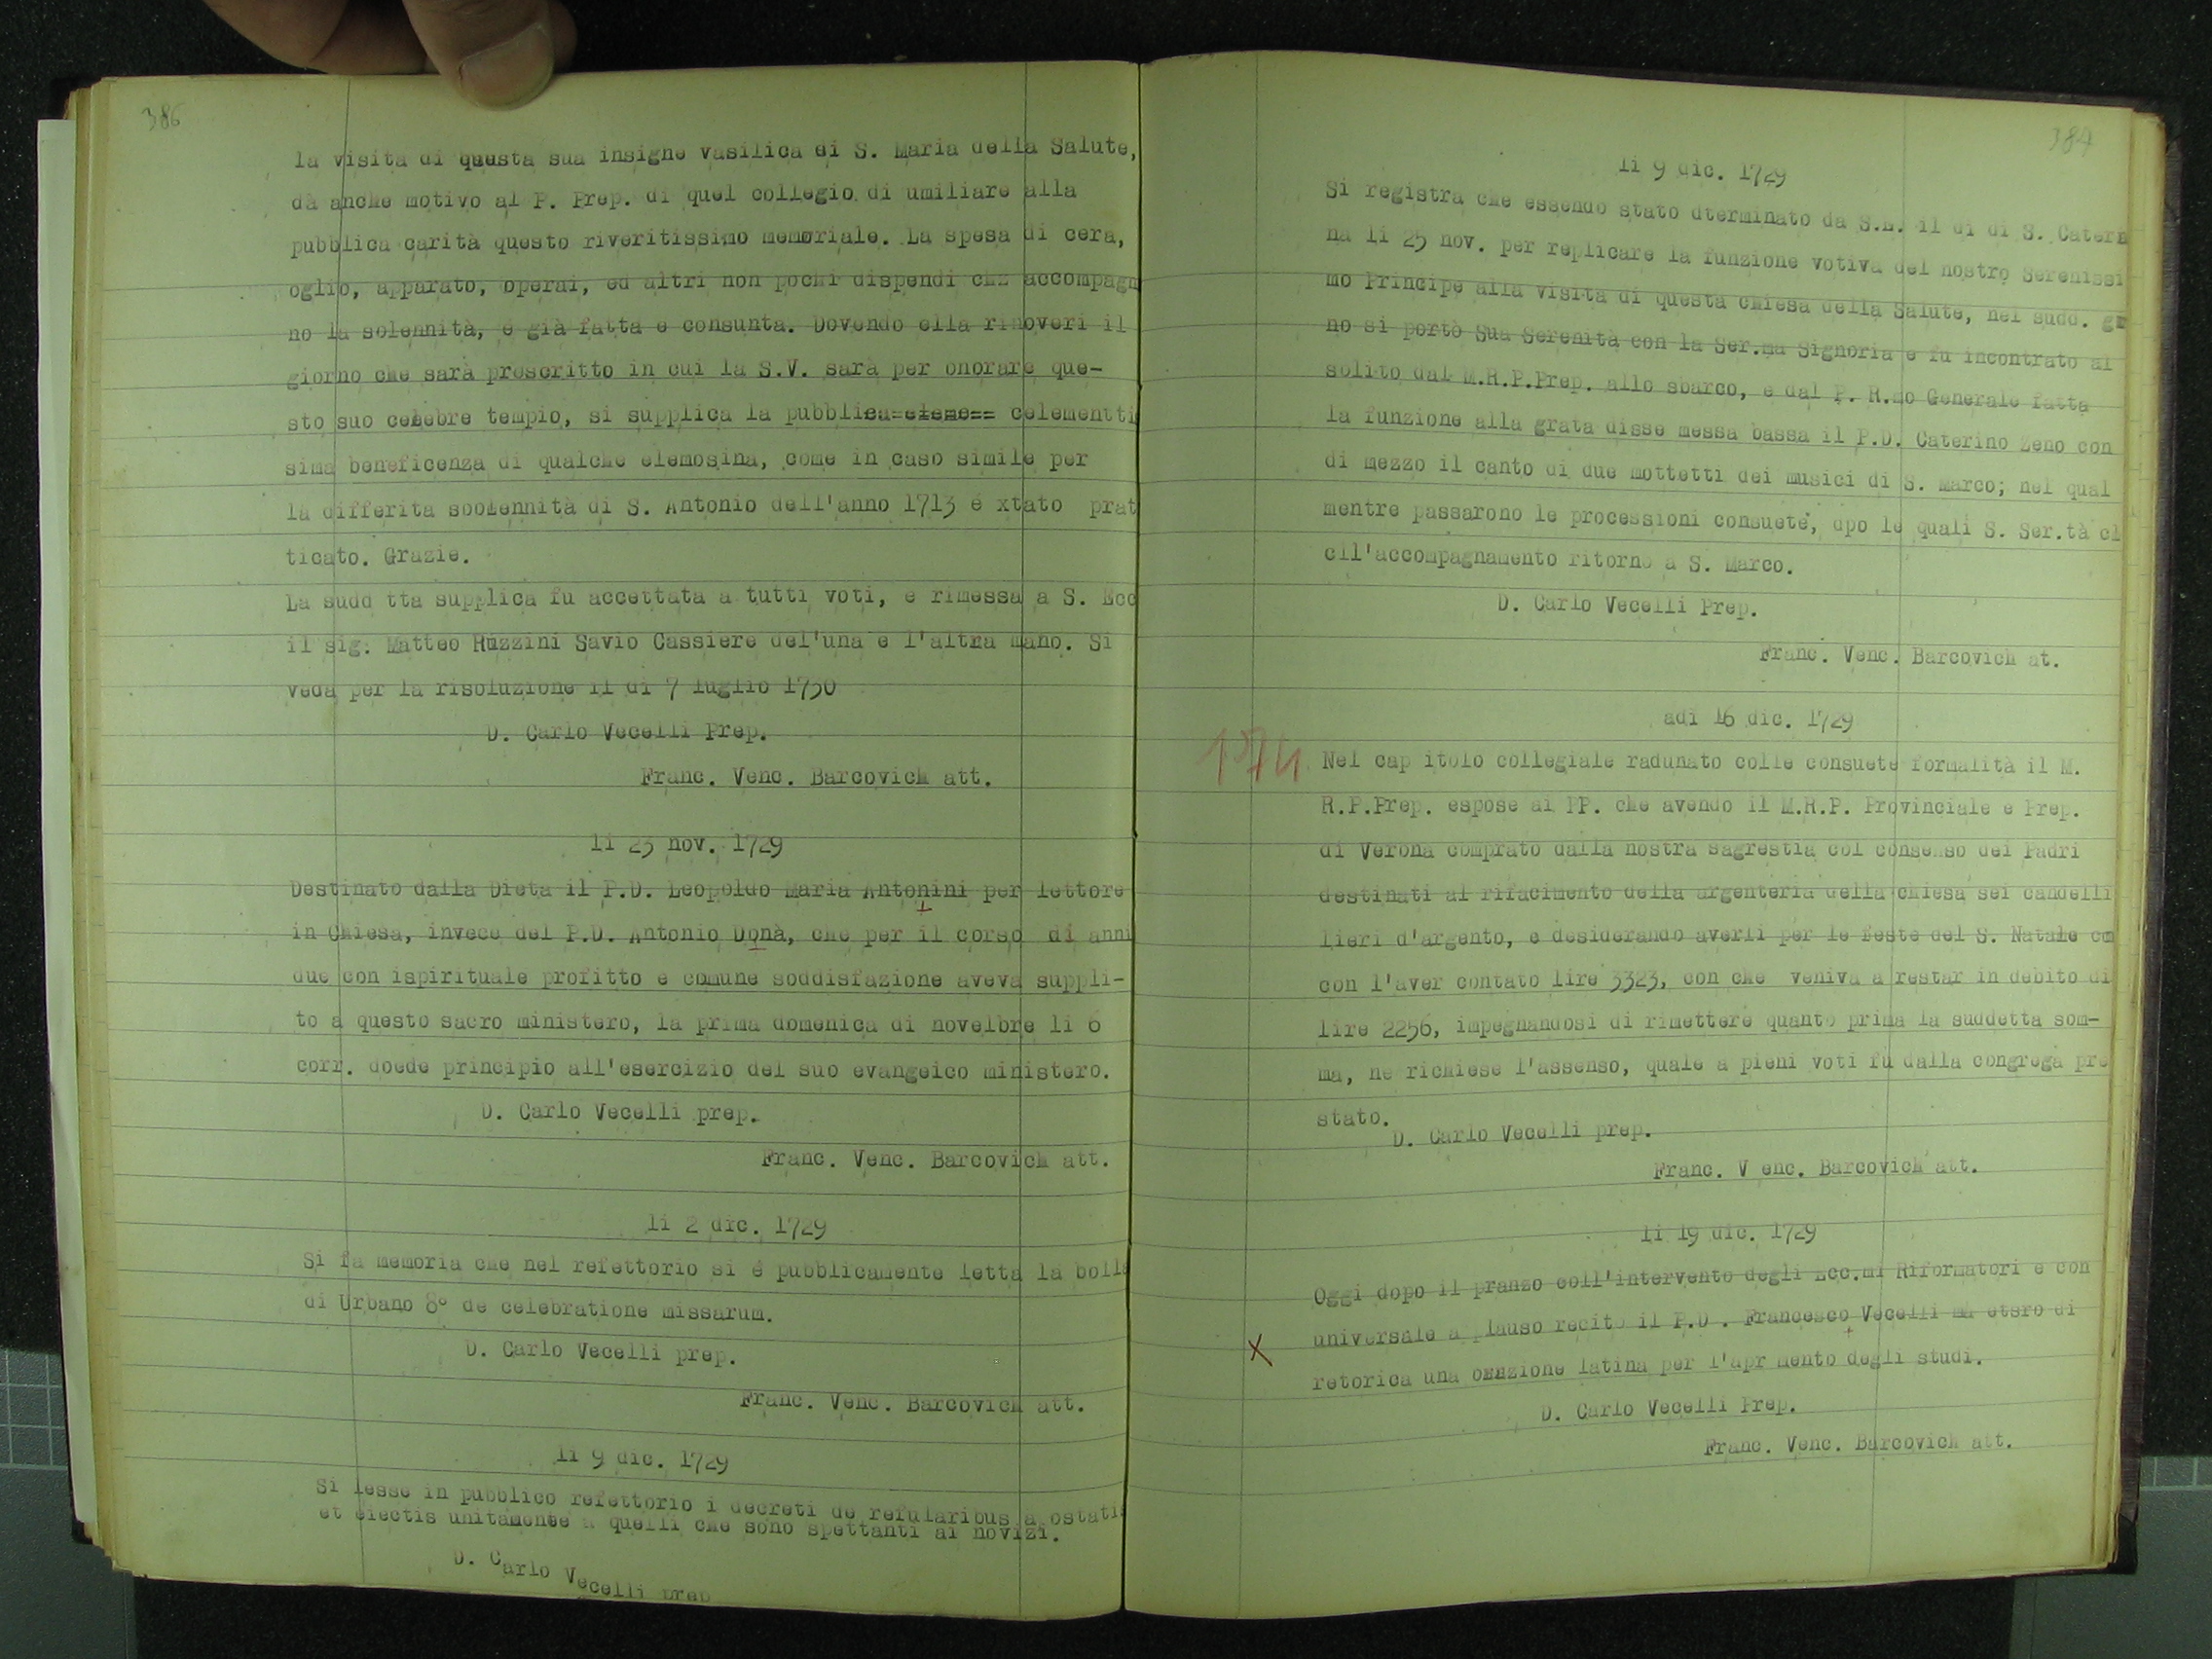 386
la visita di questa sua insigne vasilica di S. Maria della Salute,
dà anche motivo al P. Prep. di quel collegio di umiliare alla
pubblica carità questo riveritissimo memoriale. La spesa di cera,
oglio, apparato, operai, ed altri non pochi dispendi chz accompagn
no la solennità, e già fatta e consunta. Dovendo ella rinoveri il
giorno che sarà proscritto in cui la S.V. sarà per onorare que-
sto suo celebre tempio, si supplica la pubblica=cleme== celementti
sima beneficenza di qualche elemosina, come in caso simile per
la differita soolennità di S. Antonio dell'anno 1713 é xtato prat
ticato. Grazie.
La sudd tta supplica fu accettata a tutti voti, e rimessa a S. Ecc
il sig. Matteo Ruzzini Savio Cassiere del'una e l'altra mano. Si
veda per la risoluzione il di 7 luglio 1730
D. Carlo Vecelli Prep.
Franc. Venc. Barcovich att.
li 23 nov. 1729
Destinato dalla Dieta il P.D. Leopoldo Maria Antonini per lettore
in Chiesa, invece del P.D. Antonio Donà, che per il corso di anni
due con ispirituale profitto e comune soddisfazione aveva suppli-
to a questo sacro ministero, la prima domenica di novelbre li 6
corr. doede principio all'esercizio del suo evangeico ministero.
D. Carlo Vecelli prep.
Franc. Venc. Barcovich att.
li 2 dic. 1729
Si fa memoria che nel refettorio si é pubblicamente letta la bolla
di Urbano 8° de celebratione missarum.
D. Carlo Vecelli prep.
Franc. Venc. Barcovich att.
li 9 dic. 1729
Si lesse in pubblico refettorio i decreti de refularibus a ostatis
et eiectis unitamente a quelli che sono spettanti ai novizi.
D. Carlo Vecelli prep
384
li 9 dic. 1729
Si registra che essendo stato dterminato da S.E. il di di S. Catern
na li 25 nov. per replicare la funzione votiva del nostro Serenissi
mo Principe alla visita di questa chiesa della Salute, nel sudd. gr
no si portò Sua Serenità con la Ser.ma Signoria e fu incontrato al
solito dal M.R.P.Prep. allo sbarco, e dal P. R.mo Generale fatta
la funzione alla grata disse messa bassa il P.D. Caterino Zeno con
di mezzo il canto di due mottetti dei musici di S. Marco; nel qual
mentre passarono le processioni consuete, dpo le quali S. Ser.tà cl
cll'accompagnamento ritorno a S. Marco.
D. Carlo Vecelli Prep.
Franc. Venc. Barcovich at.
adi 16 dic. 1729
Nel cap itolo collegiale radunato colle consuete formalità il M.
R.P.Prep. espose ai PP. che avendo il M.R.P. Provinciale e Prep.
di Verona comprato dalla nostra sagrestia col consenso dei Padri
destinati al rifacimento della argenteria della chiesa sei candelli
lieri d'argento, e desiderando averli per le feste del S. Natale co
con l'aver contato lire 3323, con che veniva a restar in debito di
lire 2256, impegnandosi di rimettere quanto prima la suddetta som-
ma, ne richiese l'assenso, quale a pieni voti fu dalla congrega pre
stato.
D. Carlo Vecelli prep.
Franc. V enc. Barcovich att.
li 19 dic. 1729
Oggi dopo il pranzo coll'intervento degli Ecc.mi Riformatori e con
X universale a plauso recito il P.D . Francesco Vecelli ma etsro di
retorica una orazione latina per l'apr mento degli studi.
D. Carlo Vecelli Prep.
Franc. Venc. Barcovich att.